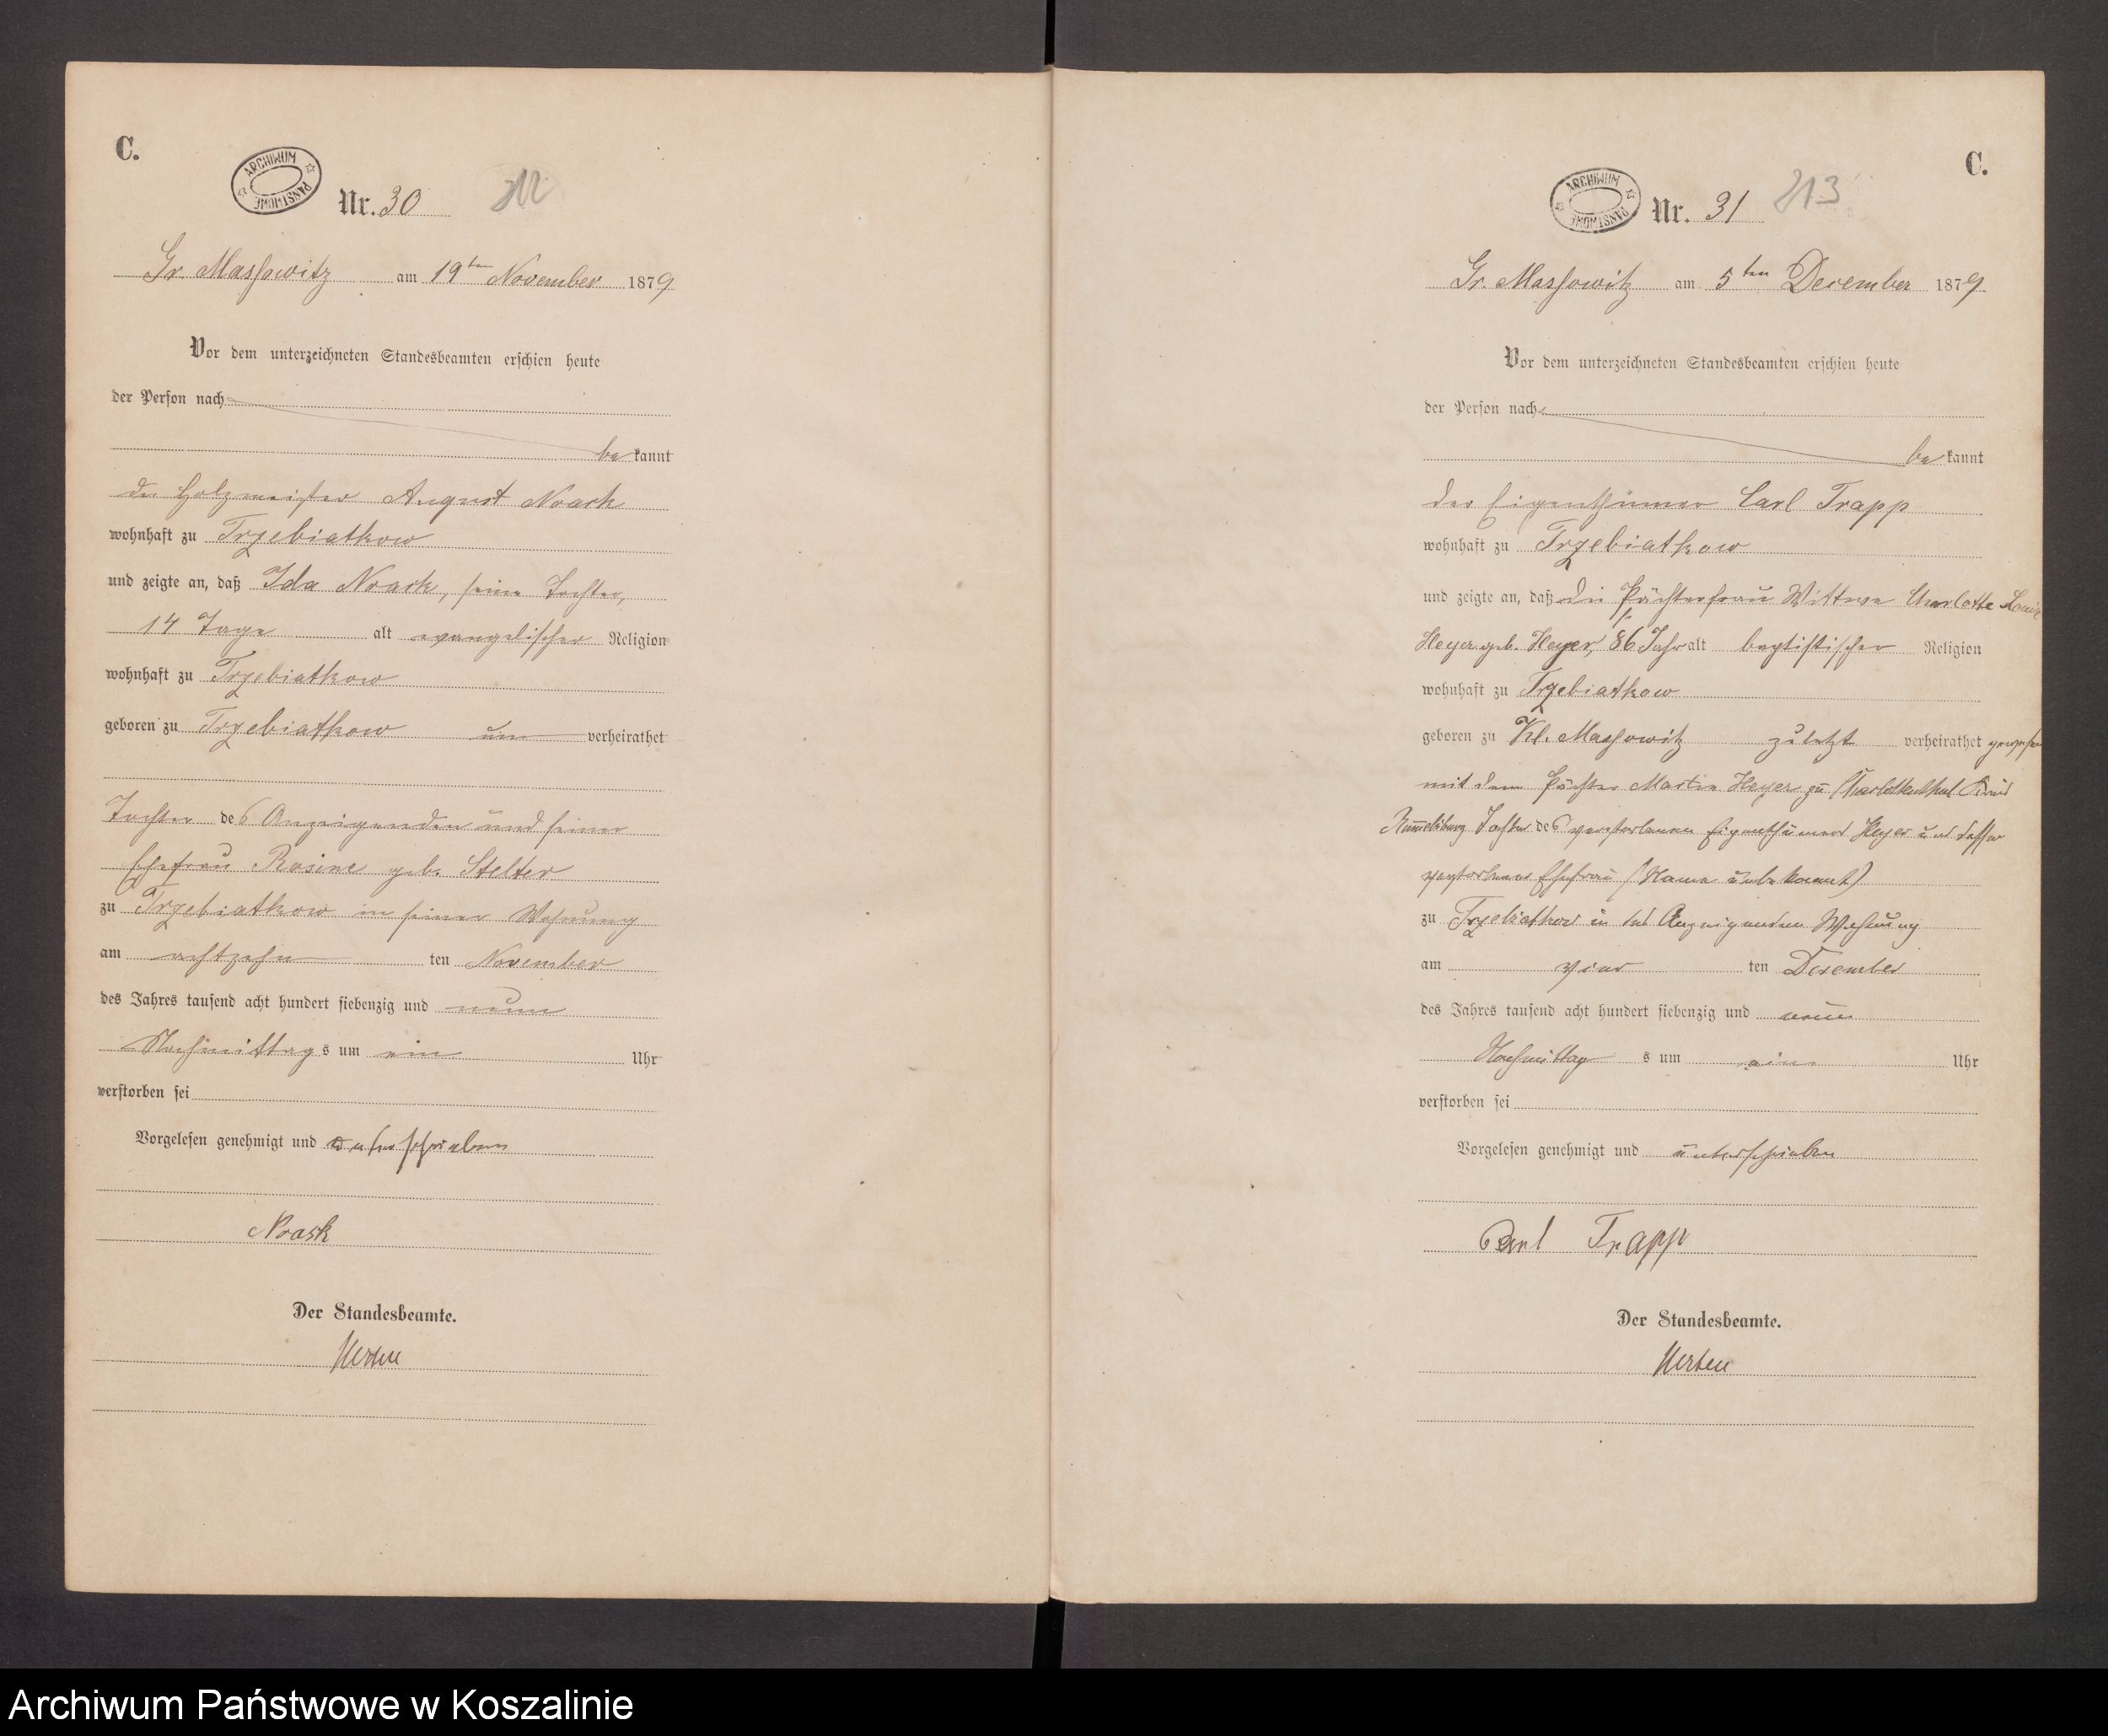 C.
ARCHIWUM PAŃSTWOWE
Nr. 30 212
Gr. Massowitz am 19ten November 1879
Vor dem unterzeichneten Standesbeamten erschien heute
der Person nach
be kannt
der Holzmeister August Noack
wohnhaft zu Trzebiatkow
und zeigte an, daß Ida Noack, seine Tochter,
14 Tage alt evangelischer Religion
wohnhaft zu Trzebiatkow
geboren zu Trzebiatkow un verheirathet
Tochter des Anzeigenden und seiner
Ehefrau Rosine geb. Stelter
zu Trzebiatkow in seiner Wohnung
am achtzehn ten November
des Jahres tausend acht hundert siebenzig und neun
Nachmittag s um ein Uhr
verstorben sei
Vorgelesen genehmigt und unterschrieben
Noack
Der Standesbeamte.
C.
ARCHIWUM PAŃSTWOWE
Nr. 31 213
Gr. Massowitz am 5ten December 1879.
Vor dem unterzeichneten Standesbeamten erschien heute
der Person nach
be kannt
der Eigenthümer Carl Trapp
wohnhaft zu Trzebiatkow
und zeigte an, daß die Pächterfrau Wittwe Charlotte Louise
Heyer geb. Heyer, 86 Jahr alt baptistischer Religion
wohnhaft zu Trzebiatkow
geboren zu Kl. Massowitz zuletzt verheirathet gewesen
mit dem Pächter Martin Heyer zu Charlottenthal Kreis
Rummelsburg Tochter des verstorbenen Eigenthümers Heyer und dessen
verstorbenen Ehefrau (Name unbekannt)
zu Trzebiatkow in des Anzeigenden Wohnung
am vier ten December
des Jahres tausend acht hundert siebenzig und neun
Nachmittag s um ein Uhr
verstorben sei
Vorgelesen genehmigt und unterschrieben
Carl Trapp
Der Standesbeamte.
Archiwum Państwowe w Koszalinie